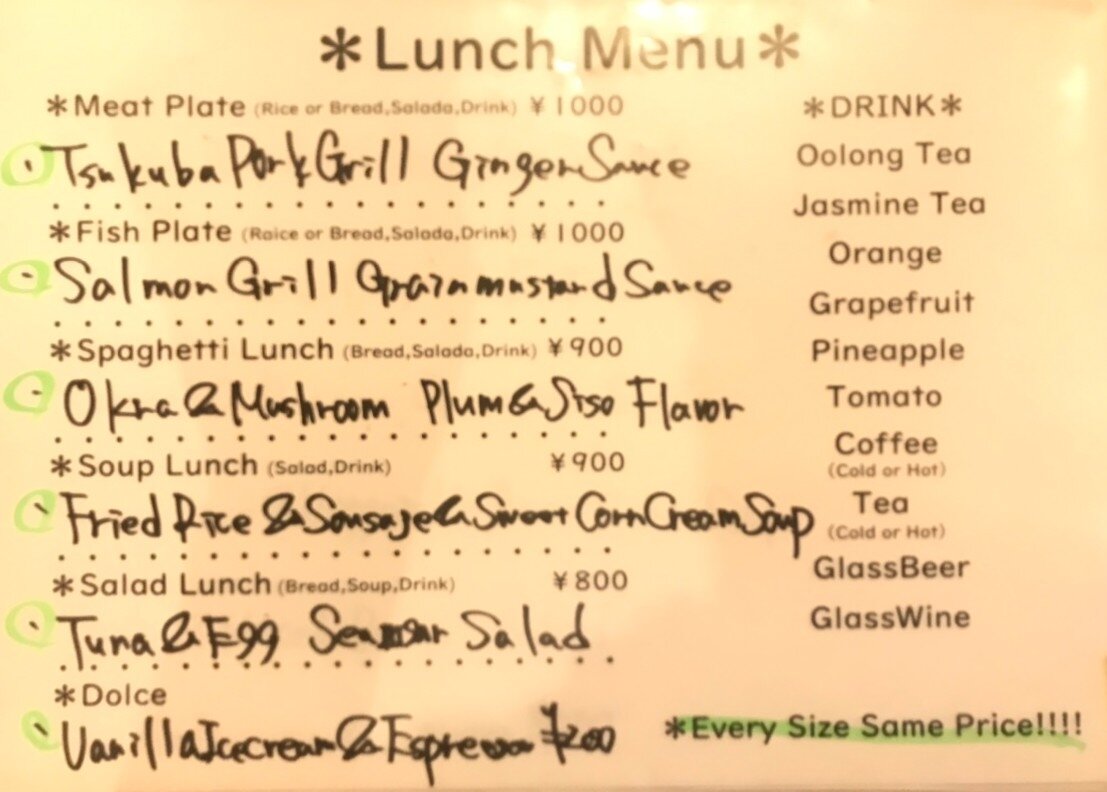 *Lunch Menu*
*Meat Plate (Rice or Bread,Salada,Drink) ¥1000
・Tsukuba Pork Grill Ginger Sauce
*Fish Plate (Raice or Bread,Salada,Drink) ¥1000
・Salmon Grill Grainmustard Sauce
*Spaghetti Lunch (Bread,Salada,Drink) ¥900
・Okra & Mushroom Plum & Siso Flavor
*Soup Lunch (Salad,Drink) ¥900
・Fried Rice & Sousage & Sweet Corn Cream Soup
*Salad Lunch (Bread,Soup,Drink) ¥800
・Tuna & Egg Salad
*Dolce
・Vanilla Icecream & Espresso ¥200
*DRINK*
Oolong Tea
Jasmine Tea
Orange
Grapefruit
Pineapple
Tomato
Coffee
(Cold or Hot)
Tea
(Cold or Hot)
GlassBeer
GlassWine
*Every Size Same Price!!!!